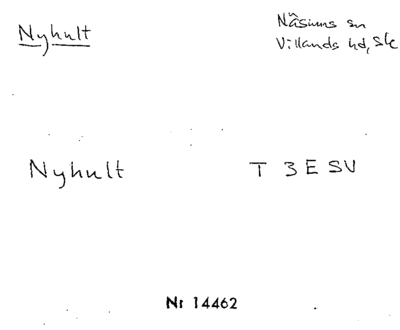 Nyhult
Näsums sn
Villands hd, Sk
Nyhult T 3 E SV
Nr 14462